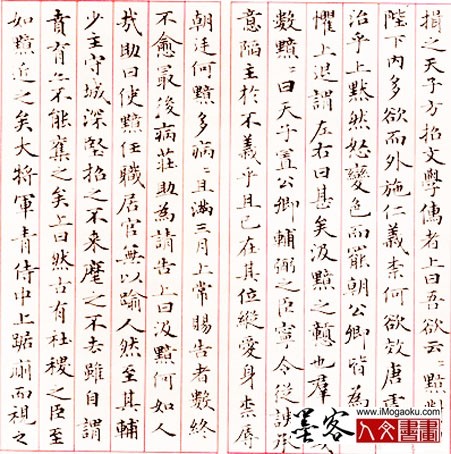 損之天子方招文學儒者上曰吾欲云〻黯對
陛下内多欲而外施仁義柰何欲效唐虞
治乎上黙然怒變色而罷朝公卿皆為
懼上退謂左右曰甚矣汲黯之戇也群
數黯〻曰天子置公卿輔弼之臣寧令從諛承
意陷主於不義乎且已在其位縱愛身柰辱
朝廷何黯多病〻且滿三月上常賜告者數終
不愈最後病莊助為請告上曰汲黯何如人
哉助曰使黯任職居官無以踰人然至其輔
少主守城深堅招之不来麾之不去雖自謂
賁育亦不能奪之矣上曰然古有社稷之臣至
如黯近之矣大將軍青侍中上踞廁而視之
墨客
www.iMogaoku.com
人文書畫